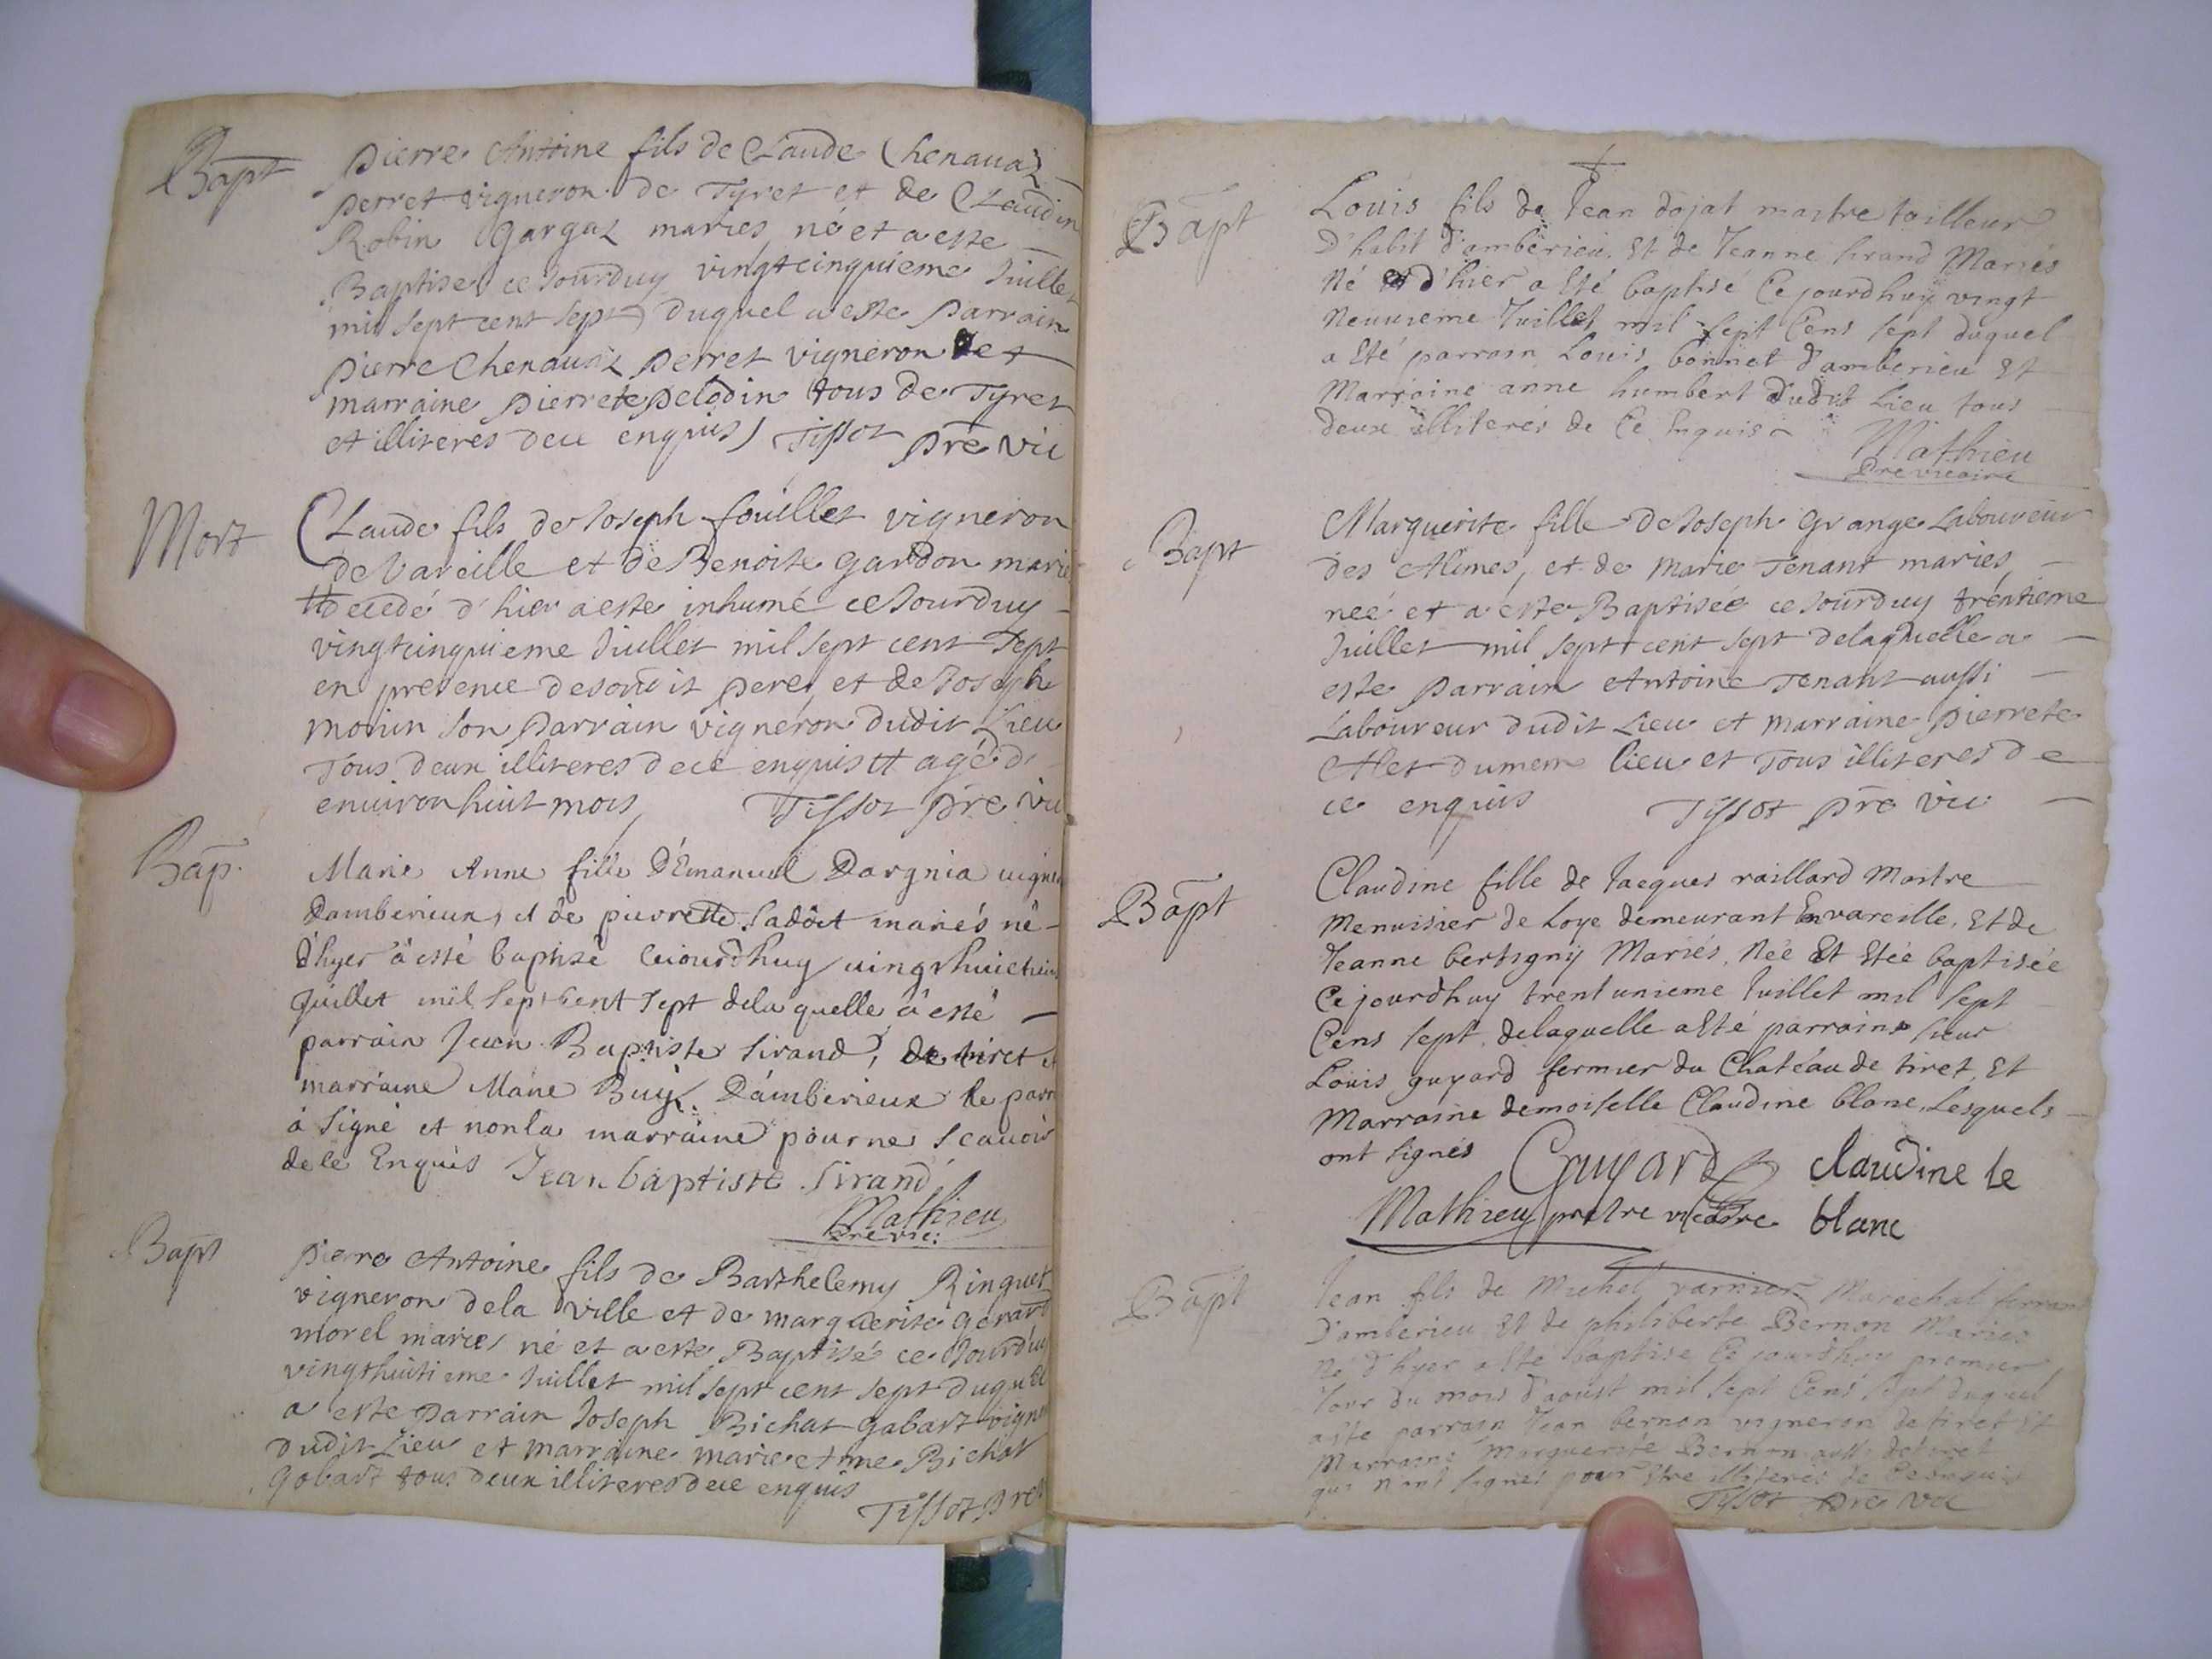 Bapt
Pierre Antoine fils de Claude Chenauaz
perret vigneron de Tyret et de Claudin
Robin Gargaz maries né et a este
Baptisé ce Jourduy vingtcinquieme Juillet
mil sept cent sept duquel a este Parrain
Pierre Chenauaz perret vigneron et
marraine Pierrete pelodin tous de Tyret
et illiteres dece enquis Tissot pre vic
Mort
Claude fils de Joseph fouillet vigneron
de Vareille et de Benoite gardon marie
decedé d'hier a este inhumé ce Jourduy
vingtcinquieme Juillet mil sept cent sept
en presence desondit pere et de Joseph
morin son Parrain vigneron dudit Lieu
Tous deux illiteres dece enquis agé d
enuiron huit mois Tissot pre vic
Bap.
Marie Anne fille D'Emanuel Dargnia uigne
Damberieux, et de pierrette Ladoit mariés né
d'hyer à esté baptizé Ceiourdhuy uingthuictiem
Juillet mil sept Cent sept dela quelle à esté
parrain Jean Baptiste Sirand, de tiret et
marraine Marie Buy. D'amberieux le parr
à signé et nonla marraine pour ne scauoir
de ce Enquis Jean baptiste Sirand
Mathieu
pre vic:
Bapt
Pierre Antoine fils de Barthelemy Ringuet
vigneron dela ville et de marguerite gerard
morel maries né et a este Baptisé ce Jourduy
vingthuitieme Juillet mil sept cent sept duquel
a este Parrain Joseph Bichat Gabart vigne
dudit Lieu et marraine marie et me Bichat
Gobart tous deux illiteres dece enquis
Tissot pre
Bapt
Louis fils de Jean dojat maitre tailleur
D'habit d'amberieu Et de Jeanne Sirand Mariés
Né d'hier a Eté baptisé Ce jourdhuy vingt
Neuuieme Juillet mil sept Cens sept duquel
a Eté parrain Louis bonnet d'amberieu Et
Marraine anne humbert dudit Lieu tous
deux illiterés de Ce Enquis
Mathieu
Pre vicaire
Bapt
Marguerite fille de Joseph Grange Laboureur
des Alimes, et de Marie Tenant maries
neé et a este Baptisée ce Jourduy trentieme
Juillet mil sept cent sept delaquelle a
este Parrain Antoine Tenant aussi
Laboureur dudit Lieu et marraine Pierrete
Alet dumem lieu et Tous illiteres de
ce enquis Tissot pre vic
Bapt
Claudine fille de Jacques raillard Maitre
Menuisier de Loye demeurant En vareille, Et de
Jeanne bertigny Mariés, Née Et Etée baptisée
Ce jourdhuy trentunieme Juillet mil sept
Cens sept, delaquelle a Eté parrain sieur
Louis guyard fermier du Chatéau de tiret, Et
Marraine demoiselle Claudine blanc, Lesquels
ont signés Guyard claudine le
Mathieu pretre vicaire blanc
Bapt
Jean fils de Michel varnier Marechal ferrant
D'amberieu Et de philiberte Bernon Mariés
Né d'hyer a Eté baptise Ce jourdhuy premier
Jour du mois d'aoust mil sept Cens sept duquel
a Eté parrain Jean bernon vigneron de tiret Et
Marraine Marguerite Bernon aussi de tiret
qui n'ont signés pour Etre illiterés de Ce Enquis
Tissot pre vic